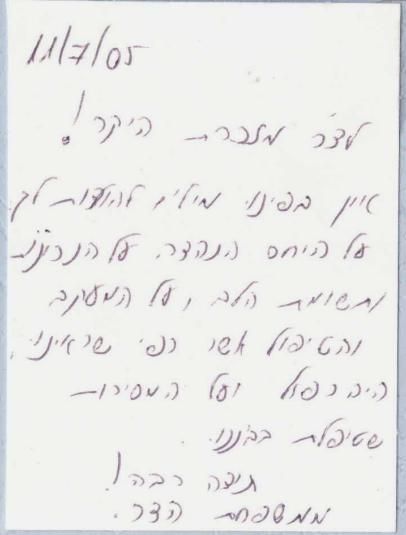 11/7/05
לצר מלכרת היקר!
אין בפינו מילים להודות לך
על היחס הנהדר, על הנדיבות
ותשומת הלב, ועל המעקב
והטיפול אשר רפי שראינו
היה כפול ועל המסירות
שטיפלת בבננו.
תודה רבה!
ממשפחת הדר.